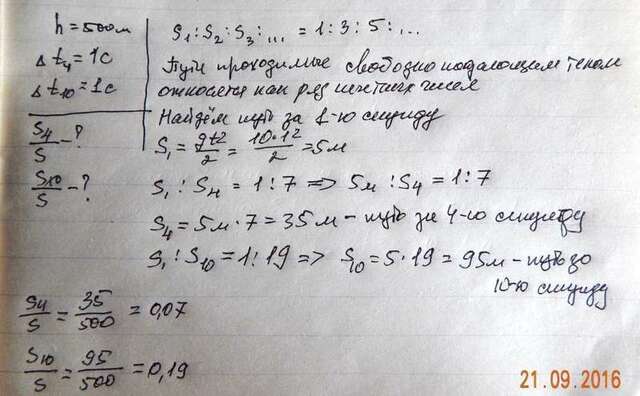 h = 500м
Δt₄ = 1с
Δt₁₀ = 1с
S₄/S - ?
S₁₀/S - ?
S₁ : S₂ : S₃ : ... = 1 : 3 : 5 : ...
Пути проходимые свободно падающим телом
относятся как ряд нечетных чисел
Найдём путь за 1-ю секунду
S₁ = gt²/2 = 10·1²/2 = 5м
S₁ : S₄ = 1:7 => 5м : S₄ = 1:7
S₄ = 5м·7 = 35м - путь за 4-ю секунду
S₁ : S₁₀ = 1:19 => S₁₀ = 5·19 = 95м - путь за
10-ю секунду
S₄/S = 35/500 = 0,07
S₁₀/S = 95/500 = 0,19
21.09.2016